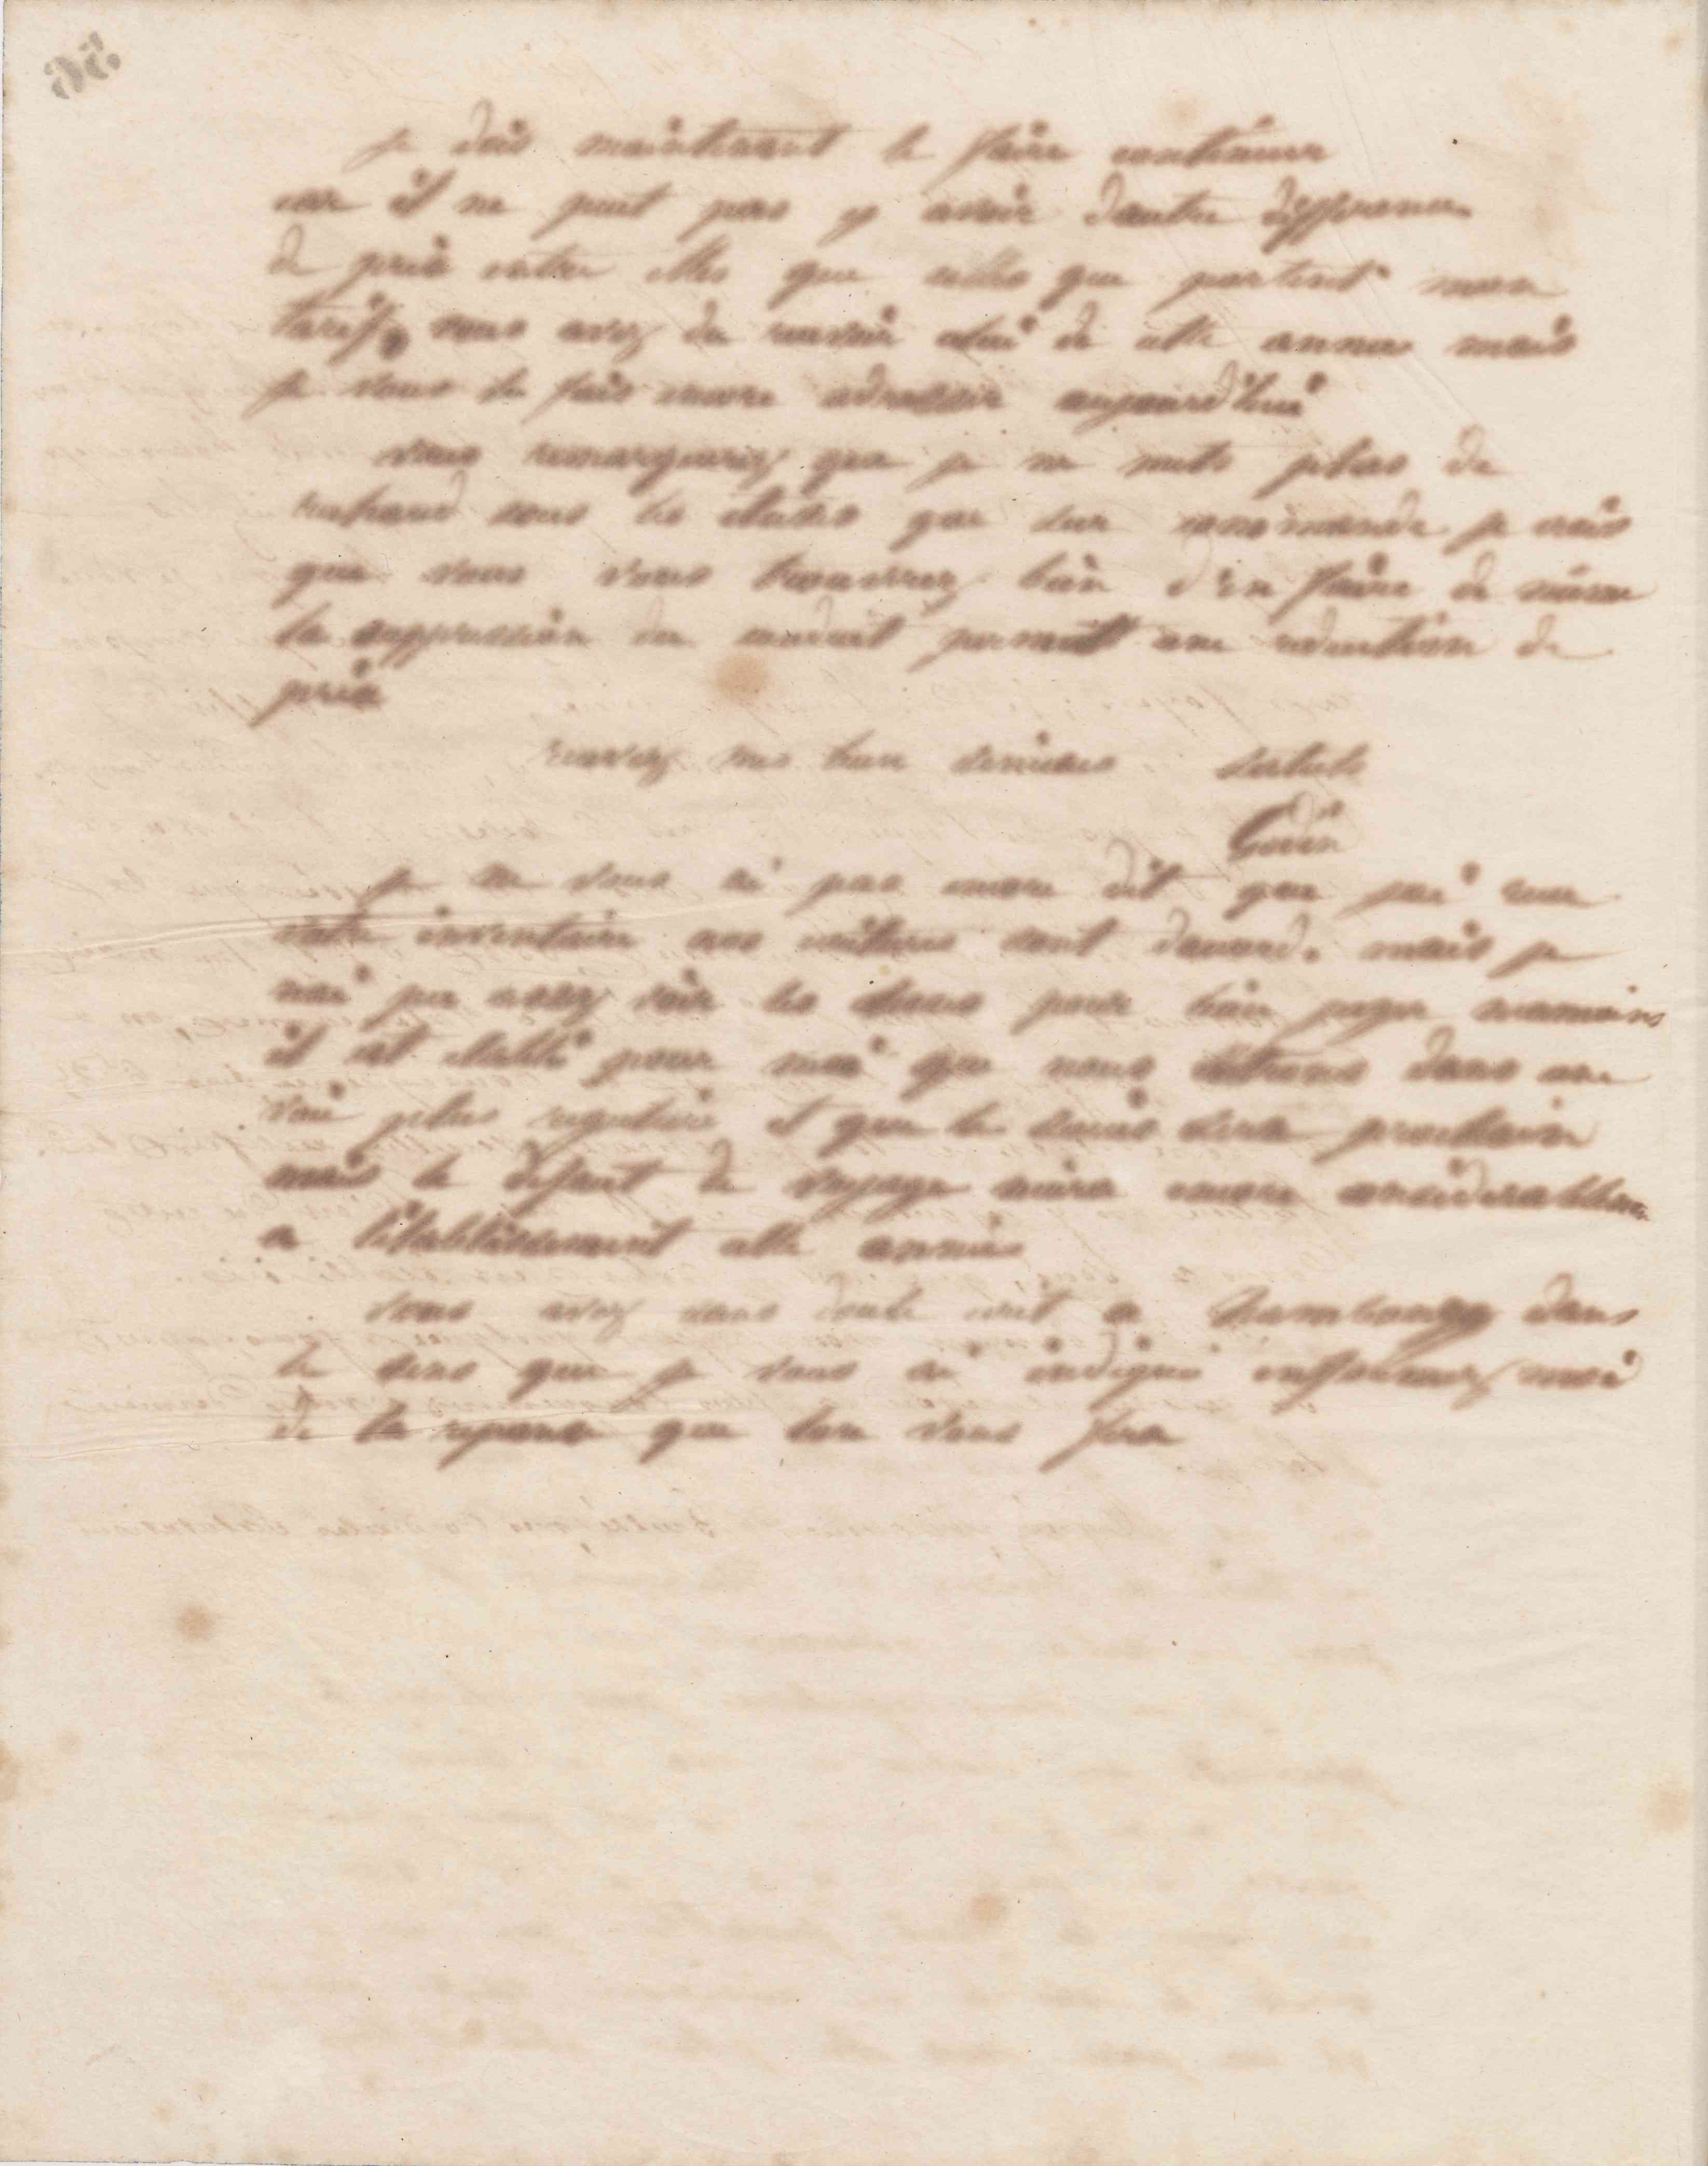 je dois maintenant le faire continuer
car il ne peut pas y avoir dautre differance
de prix entre elles que celles que portent mon
tarif vous avez du recevoir celui de cette annee mais
je vous le fais encore adresser aujourdhui
vous remarquerez que je ne mets plus de
rechaud sous les etuves que sur commande je crois
que vous vous trouverez bien d'en faire de même
la suppression du conduit permet une reduction de
prix
recevez mes bien sinceres saluts
Godin
je ne vous ai pas encore dit que jai recu
votre inventaire nos ecritures sont daccord. mais je
nai pu assez voir les choses pour bien juger neanmoins
il est etabli pour moi que nous entrons dans une
voie plus reguliere et que le succès sera prochain
mais le defaut de voyage nuira encore considerablement
a l'établissement cette année
vous avez sans doute ecrit a dans
le sens que je vous ai indiqué informez moi
de la reponse que lon vous fera